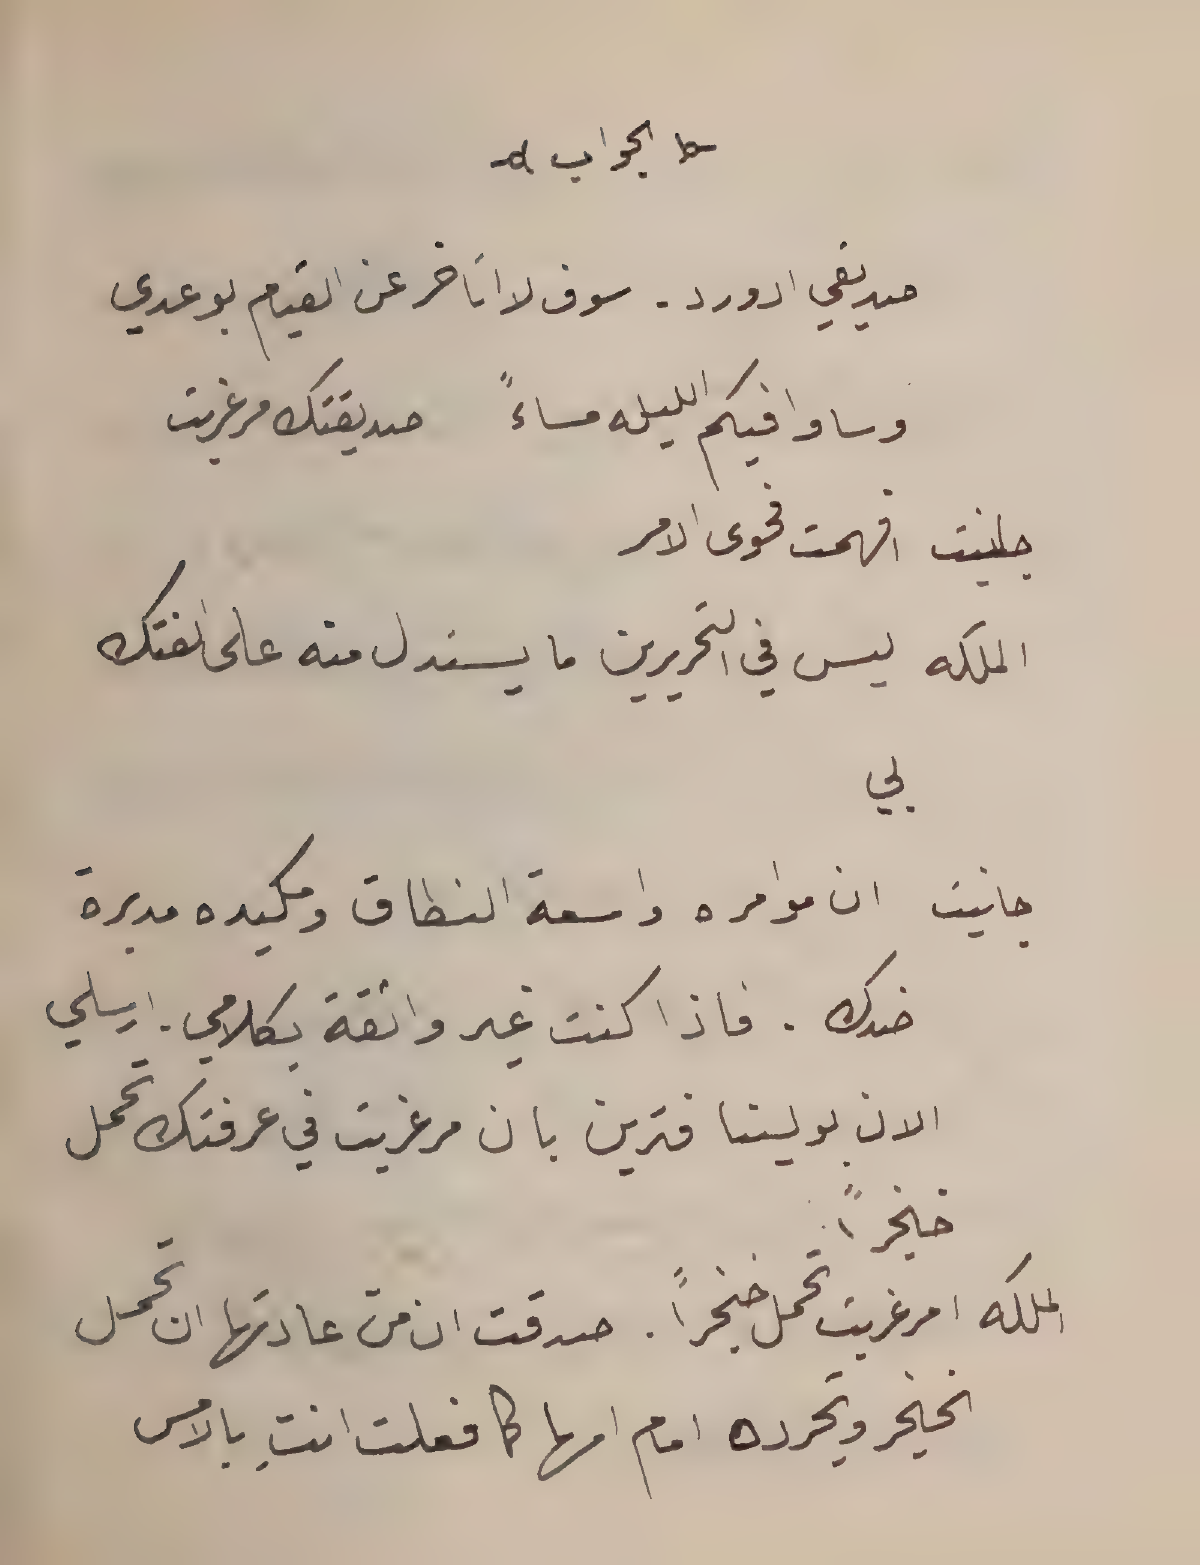 الجواب
صديقي ادورد . سوف لا اتأخر عن القيام بوعدي
وساوافيكم الليله مساءً صديقتك مرغريت
جانيت افهمت فحوى الامر
الملكه ليس في التحريرين ما يستدل منه على الفتك
بي
جانيت ان موامره واسعة النطاق ومكيده مدبرة
ضدك . فاذا كنت غير واثقة بكلامي . ارسلي
الان بوليتنا فترين بان مرغريت في غرفتك تحمل
خنجراً
الملكه امرغريت تحمل خنجراً . صدقت ان من عادتها ان تحمل
الخنجر وتجرده امام امها كما فعلت انتِ بالامس